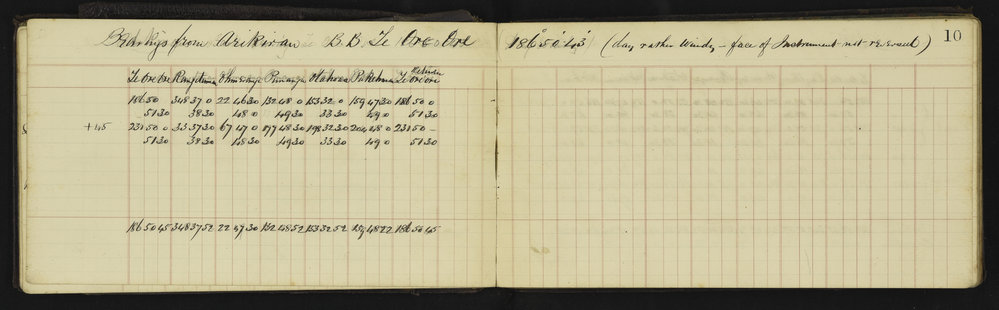 Bearings from Arikirau B.B. Te Ore Ore 186° 50' 45" (day rather windy - face of Instrument not reversed) 10
Return
Te Oreore Rangitumau Otahoua Te Oreore
186 50 348 37 0 22 46 30 132 48 0 153 32 0 159 47 30 186 50 0
51 30 38 30 48 0 49 30 33 30 49 0 51 30
+45 231 50 0 33 37 30 67 47 0 177 48 30 198 32 30 204 48 0 231 50 -
51 30 38 30 48 30 49 30 33 30 49 0 51 30
186 50 45 348 37 52 22 47 30 132 48 52 153 32 52 159 48 22 186 50 45